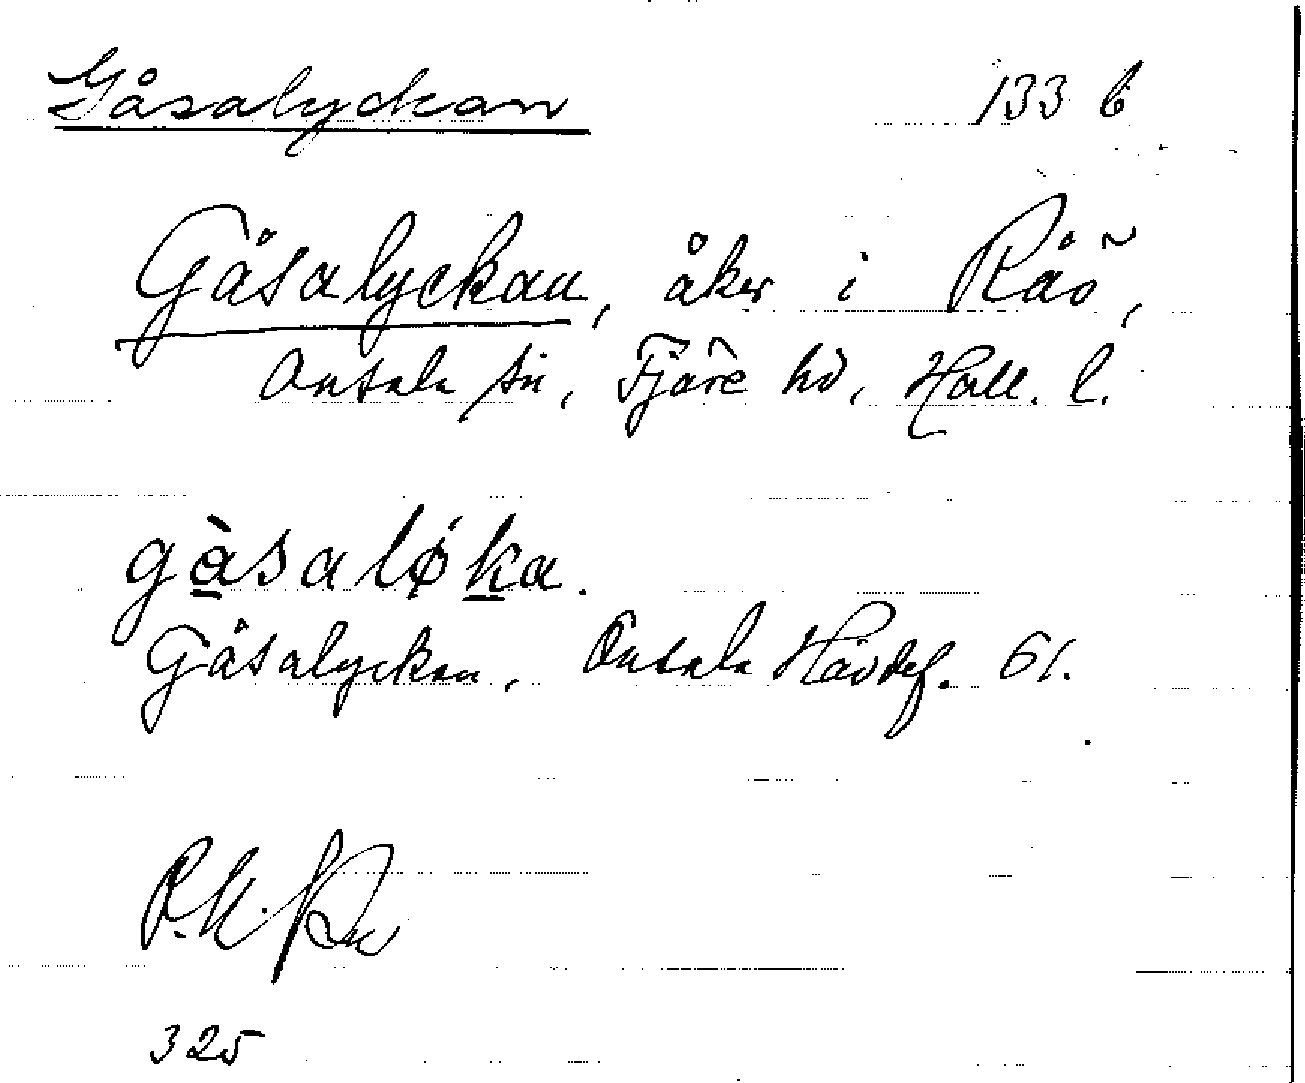 Gåsalyckan 133 b
Gåsalyckan, åker i Råö,
Onsala sn, Fjäre hd, Hall. l.
gàsaløka.
Gåsalyckan, Onsala Hävdef. 61.
325